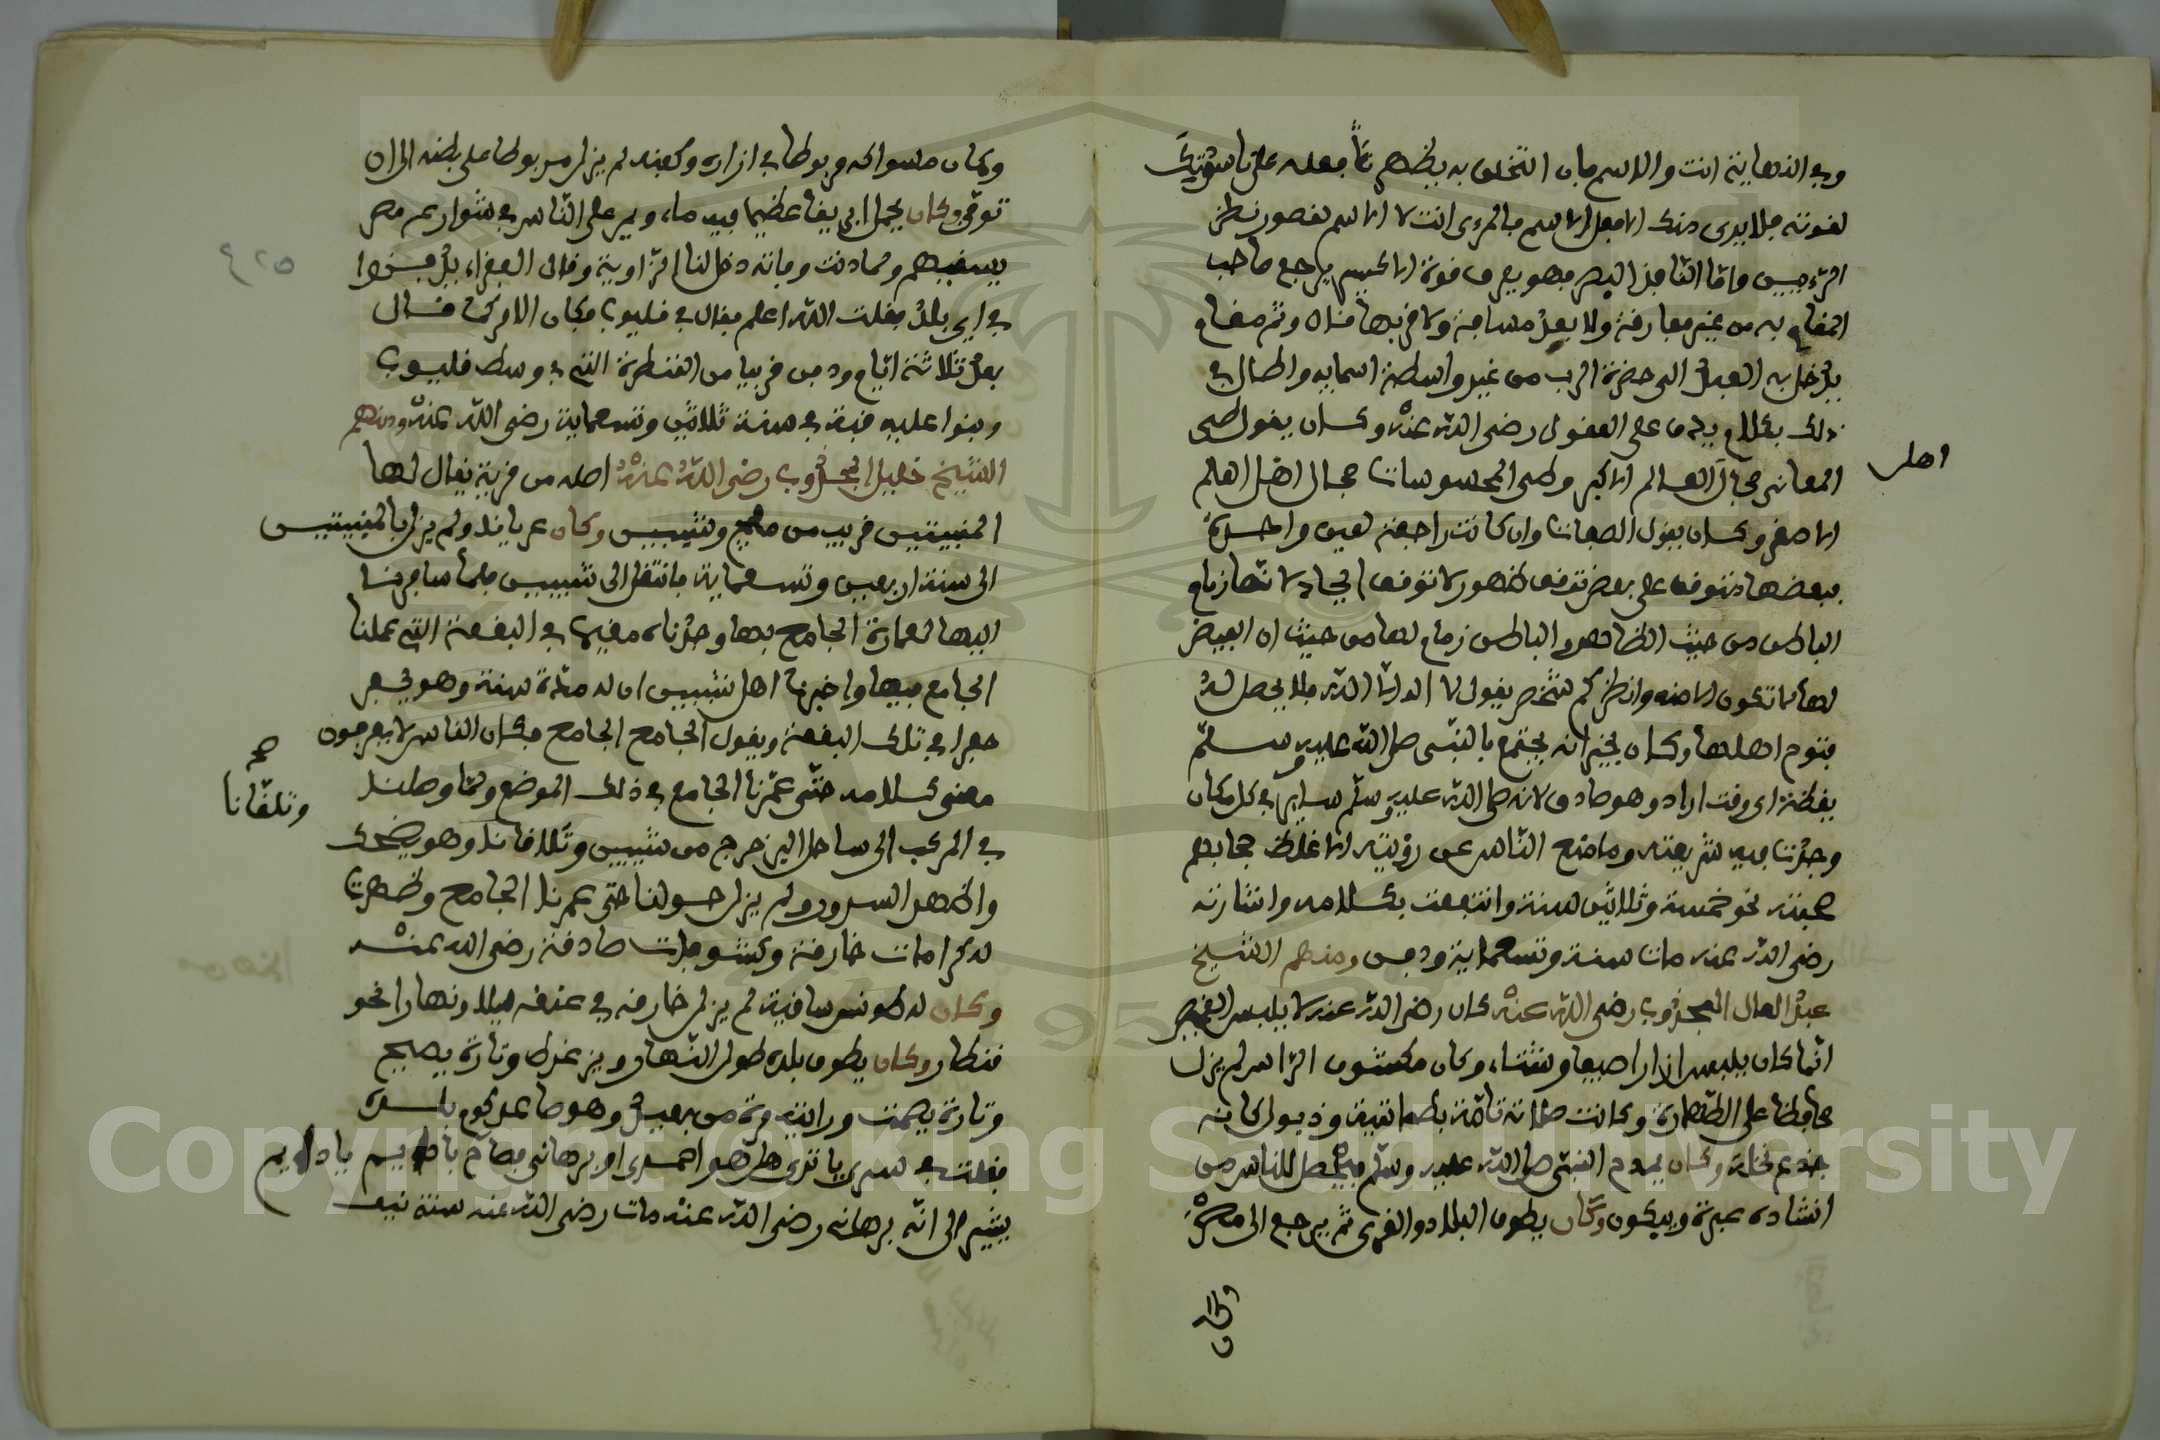 وفي النهاية انت والاسم فان التخلق به يظهر تأفعله على ناسوتيتك
لقوته فلا يرى منك الا فعل الاسم فالمرءى انت لا الاسم لقصور نظر
الرءيين واما الناقد البصير فهو يعرف قوة الاكسير يرجع صاحب
المقام به من غير مفارقة ولا بعد مسافة ولا قربها مناه وثم مقام
يدخل به العبد الى حضرة الرب من غير واسطة اسمايه واطال في
ذلك بكلام يدق على العقول رضى الله عنه وكان يقول طى
المعانى مجال العالم الاكبر وطى المحسوسات مجال اهل العالم
اهل
الاصغر وكان يقول الصفات وان كانت راجعة لعين واحدة
فبعضها متوقف على بعض توقف ظهور لا توقف ايجاد لانها زمام
الباطن من حيث الظاهر والباطن زمام لها من حيث ان الفيض
لها لا تكون الا منه وانظر كم شخص يقول لا اله الا الله فلا يحصل له
فتوح اهلها وكان يخبر انه يجتمع بالنبى صلى الله عليه وسلم
يقظة اى وقت اراد وهو صادق لانه صلى الله عليه وسلم ساير في كل مكان
وجدت فيه شريعته وما منع الناس عن رؤيته الا غلظ حجابهم
صحبته نحو خمسة وثلاثين سنة وانتفعت بكلامه واشارته
رضى الله عنه مات سنة وتسعماية ودفن ومنهم الشيخ
عبد العال المجذوب رضى الله عنه كان رضى الله عنه لا يلبس القميص
انما كان يلبس الازار صيفا وشتاء وكان مكشوف الراس لم يزل
محافظا على الطهارة وكانت صلاته تامة بطمانينة وذبول كانه
جذع نخلة وكان يمدح النبى صلى الله عليه وسلم فيحصل للناس من
انشاده عبرة ويبكون وكان يطوف البلاد والقرى ثم يرجع الى مصر
وكان
وكان مسواكه مربوطا في ازاره وكفنه لم يزل مربوطا على بطنه الى ان
توفى وكان يحمل ابريقا عظيما فيه ماء ويمر على الناس في شوارع مصر
يسقيهم ولما دنت وفاته دخل لنا الزاوية وقال الفقراء يدفنوا
في اي بلد فقلت الله اعلم فقال في قليوب فكان الامر كما قال
بعد ثلاثة ايام ودفن قريبا من القنطرة التي في وسط قليوب
وبنوا عليه قبة في سنة ثلاثين وتسعماية رضى الله عنه ومنهم
الشيخ خليل المجذوب رضى الله عنه اصله من قرية يقال لها
المنيتين قريب من مليج وشيبين وكان عريانا ولم يزل بالمنيتين
الى سنة اربعين وتسعماية فانتقل الى شيبين فلما سافرنا
اليها لعمارة الجامع بها وجدناه مقيما في البقعة التي عملنا
الجامع فيها واخبرنا اهل شيبين ان له مدة سنة وهو يحفر
حفرا في تلك البقعة ويقول الجامع الجامع فكان الناس لا يعرفون
معنى كلامه حتى عمرنا الجامع في ذلك الموضع ولما وصلنا
في المركب الى ساحل البر خرج من شيبين وتلقانا وهو يضحك
صح
وتلقانا
واظهر السرور ولم يزل حولنا حتى عمرنا الجامع وظهرت
له كرامات خارقة وكشوفات صادقة رضى الله عنه
وكان له طونس ساقية لم يزل خارقه في عنقه ليلا ونهارا نحو
قنطار وكان يطوف بلده طول النهار ويزغرط وتارة يصيح
وتارة يصمت ورايته مرة من بعيد وهو صاعد كوم بلده
فقلت في سرى يا ترى هل هو احمدى او برهانى فصاح يا دايم يا دايم
يشير الى انه برهانى رضى الله عنه مات رضى الله عنه سنة نيف
Copyright © King Saud University